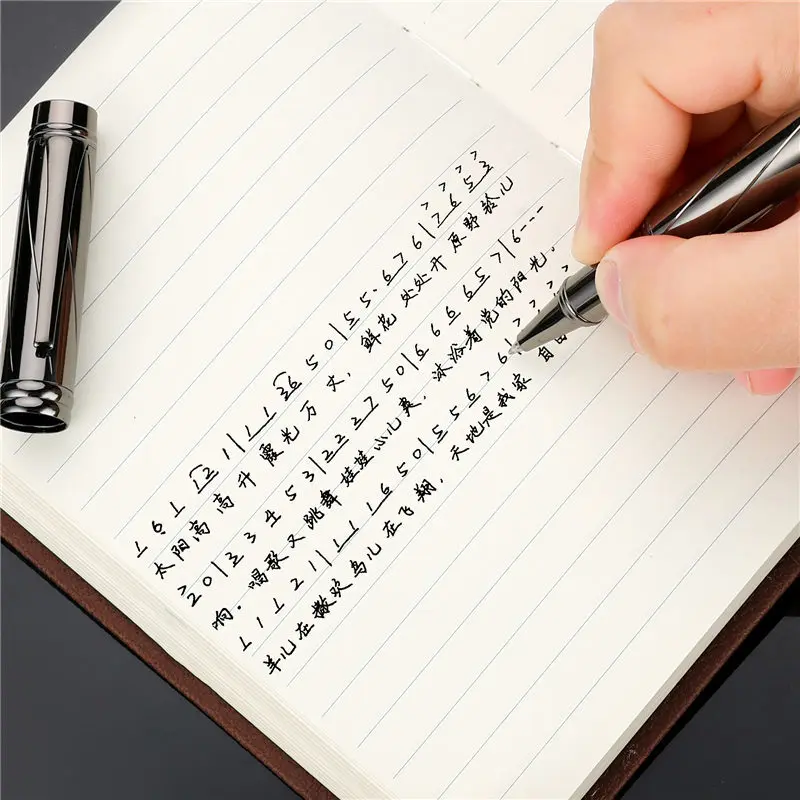 1 6 1 12 1 | 1 1 36 5 0 | 5 5· 6 7 6 | 7 6 5 3
太阳高高升 霞光万丈, 鲜花处处开 原野铃儿
2 0 | 2 3 4 5 3 | 2 2 2 7 5 0 | 6 6 6 6 5 7 | 6 - - -
响. 唱歌又跳舞 娃娃心儿美, 沐浴着党的阳光.
1 1 1 2 1 | 1 1 1 6 5 0 | 5 5 5 6 7 6
羊儿在撒欢 鸟儿在飞翔, 天地是我家 自由